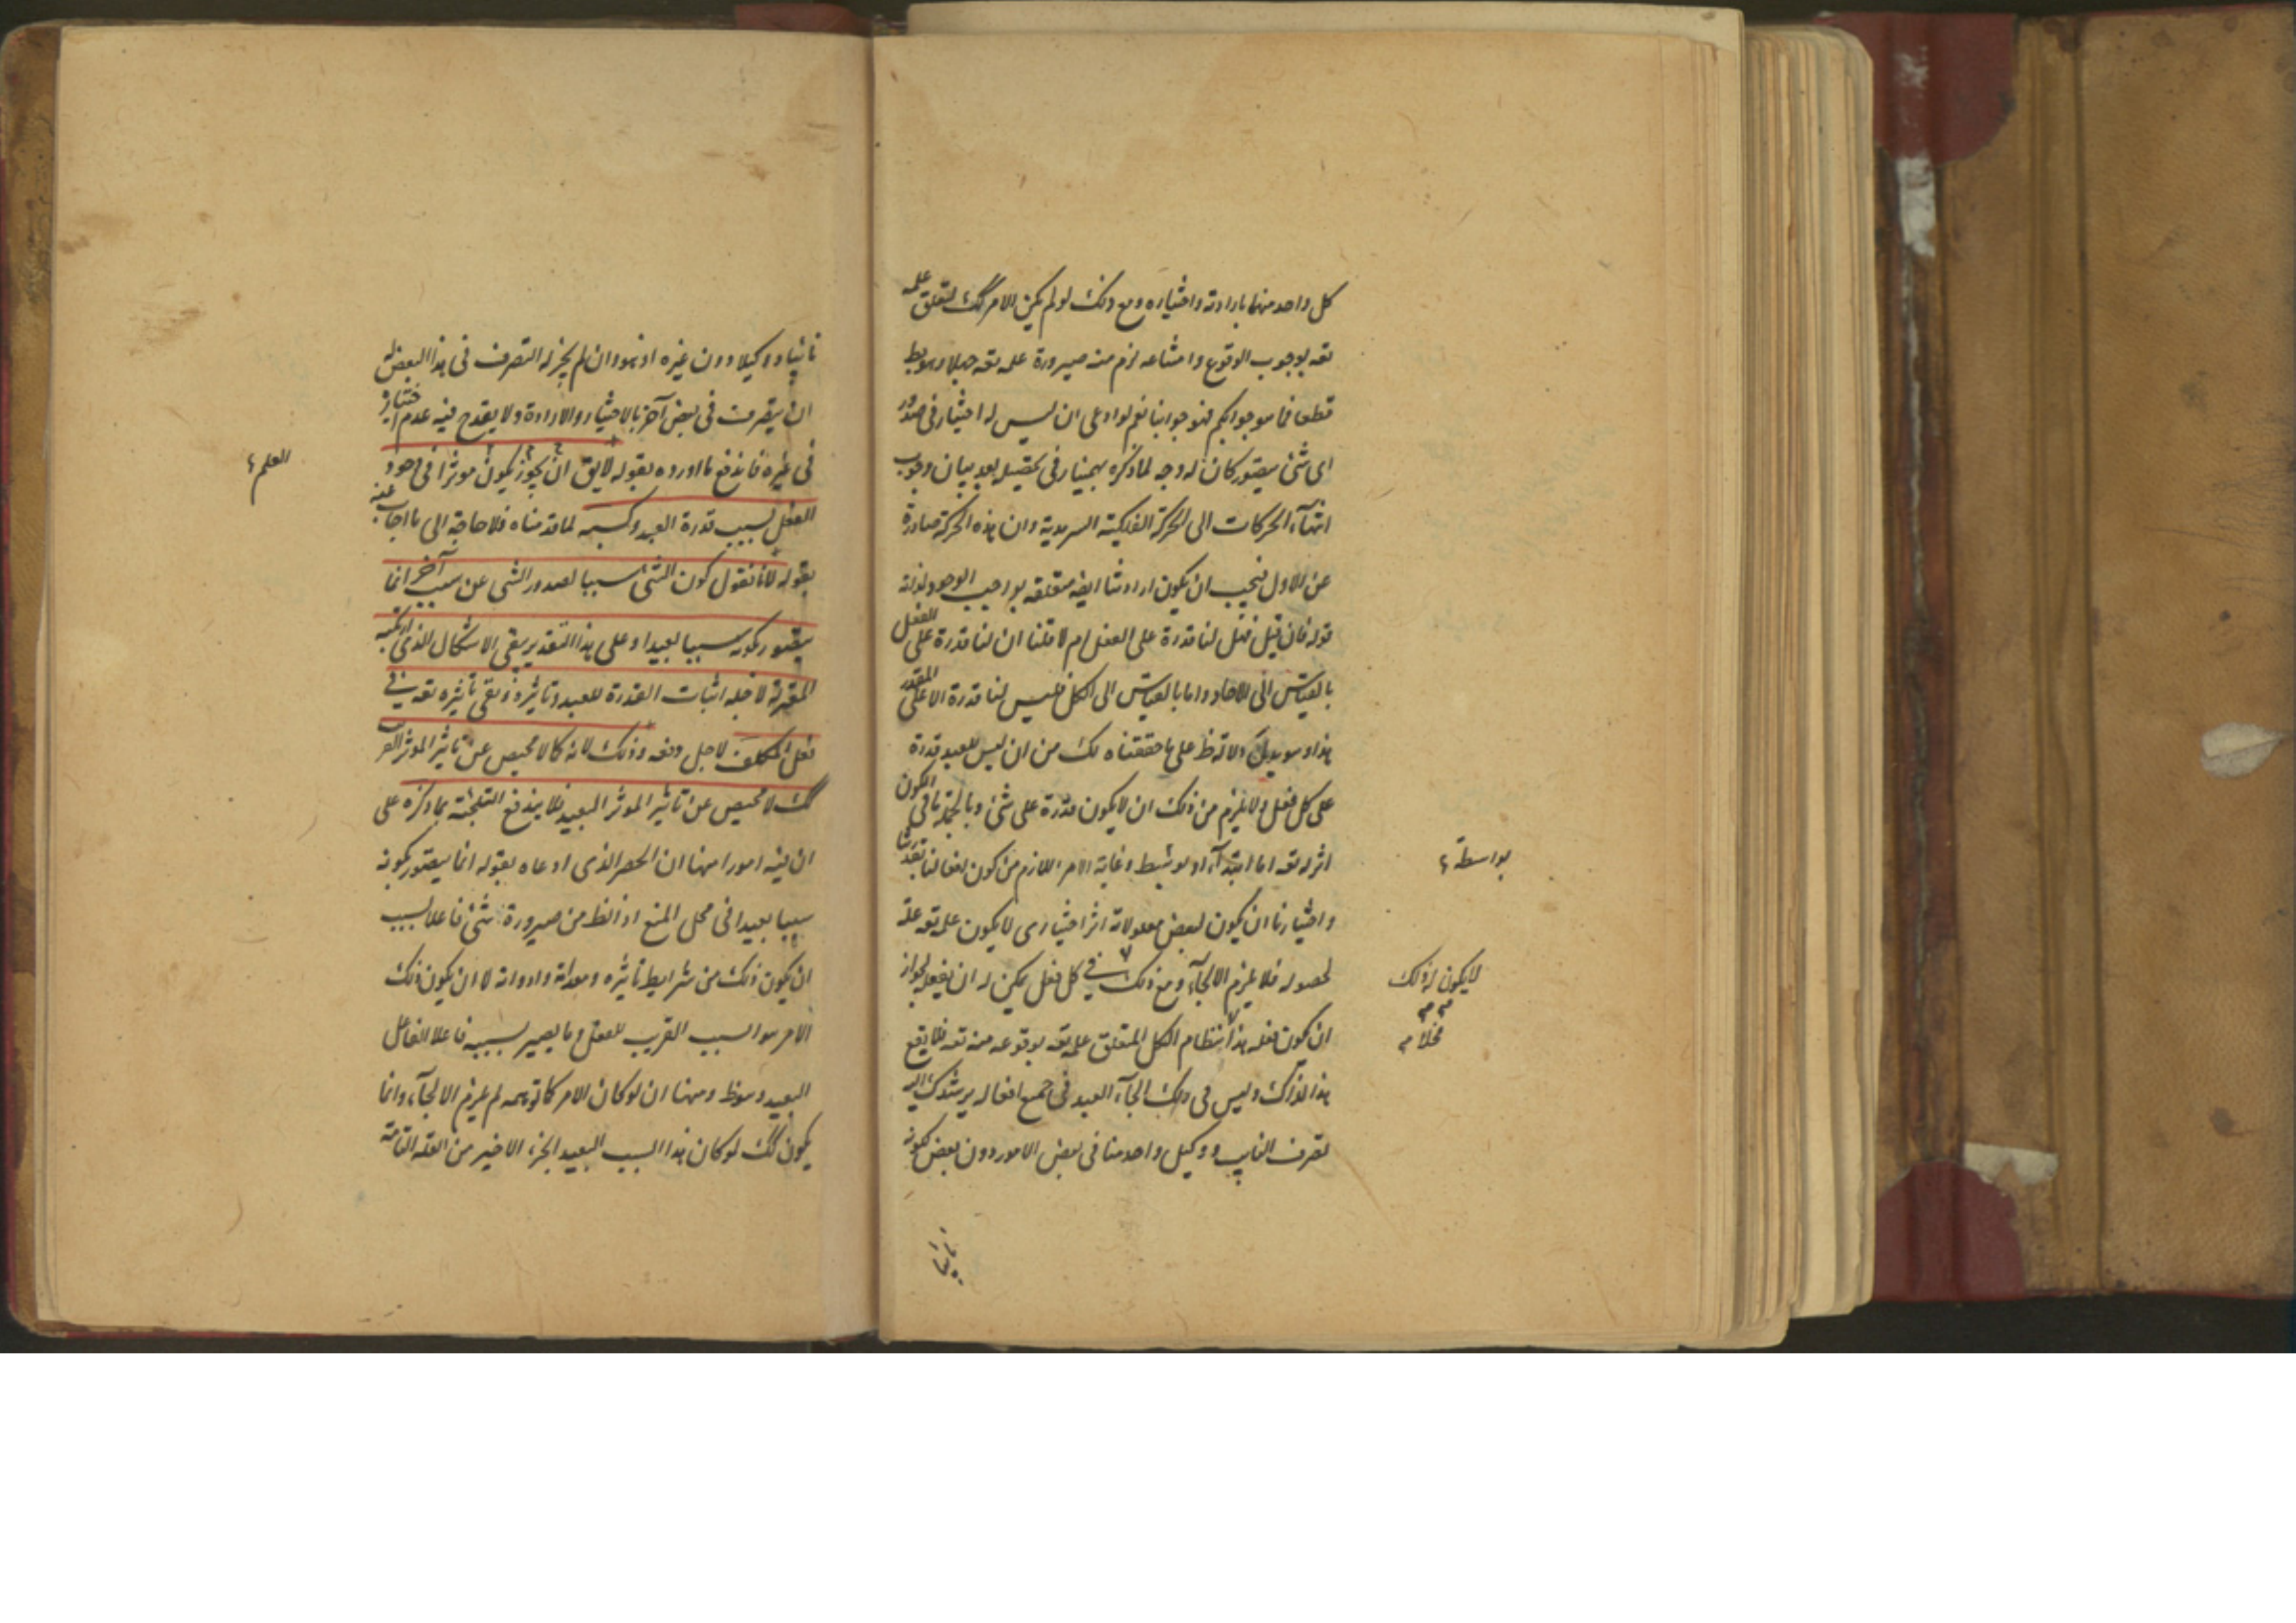 كل واحد منها بارادته واختياره ومع ذلك لو لم يكن الامر كك لتعلق علمه
تعه بوجوب الوقوع وامتناعه لزم منه صيرورة علمه تعه جهلا وهو بط
قطعا فما هو جوابكم فهو جوابنا نعم لو ادعى ان ليس له اختيار فى صدور
اى شئ يتصور كان له وجه لما ذكره بهمنيار فى تحصيله بعد بيان وجوب
انتهآء الحركات الى الحركة الفلكية السرمدية وان هذه الحركة صادرة
عن الاول فيجب ان يكون ارادتنا ايضه متعلقه بواجب الوجود لذاته
قوله فان قيل فهل لنا قدرة على الفعل ام لا قلنا ان لنا قدرة على الفعل
بالقياس الى الاحاد واما بالقياس الى الكل فليس لنا قدرة الا على المقدر
هذا وهو يدل دلالة ظ على ما حققناه لك من ان ليس للعبد قدرة
على كل فعل ولا يلزم من ذلك ان لا يكون قدرة على شئ وبالجملة ما فى الكون
اثر له تعه اما ابتدآء او بوسط وغاية الامر اللازم من كون افعالنا بقدرتنا
واختيارنا ان يكون لبعض معلولاته اثر اختيارى لا يكون علمه تعه علة
لحصوله فلا يلزم الالجآء ومع ذلك فى كل فعل يمكن له ان يفعله لجواز
ان يكون فعله هذا بنظام الكل المتعلق علمه تعه بوقوعه منه تعه فلا يقع
هذا لذلك وليس فى ذلك الجآء العبد فى جميع افعاله يرشدك اليه
تصرف النايب ووكيل واحد منا فى بعض الامور دون بعض لكونه
بواسطة
لا يكون لذلك
مخلا
نائبا
نائبا ووكيلا دون غيره اذ هو وان لم يجز له التصرف فى هذا البعض له
ان يتصرف فى بعض آخر بالاختيار والارادة ولا يقدح فيه عدم اختياره
فى غيره فاندفع ما اورده بقوله لا يق ان يجوز يكون موثرا فى وجود
الفعل بسبب قدرة العبد وكسبه لما قدمناه فلا حاجة الى ما اجاب عنه
بقوله لانا نقول كون الشئ سببا لصدور الشئ عن سبب آخر انما
يتصور بكونه سببا بعيدا وعلى هذا التقدير يبقى الاشكال الذى ارتكبه
المعتزلة لاجله اثبات القدرة للعبد وتاثيره ونفى تاثيره تعه فى
فعل المكلف لاجل دفعه وذلك لانه كما لا محيص عن تاثير الموثر القريب
كك لا محيص عن تاثير الموثر البعيد فلا يندفع بما ذكره على
ان فيه امورا منها ان الحصر الذى ادعاه بقوله انما يتصور بكونه
سببا بعيدا فى محل المنع اذ الظ من صيرورة شئ فاعلا بسبب
ان يكون ذلك من شرايط تاثيره ومعداته وادواته لا ان يكون ذلك
الامر هو السبب القريب للفعل وما يصير بسببه فاعلا الفاعل
البعيد وهو ظ ومنها ان لو كان الامر كما توهمه لم يلزم الالجآء وانما
يكون كك لو كان هذا السبب البعيد الجزء الاخير من العلة التامة
العلم